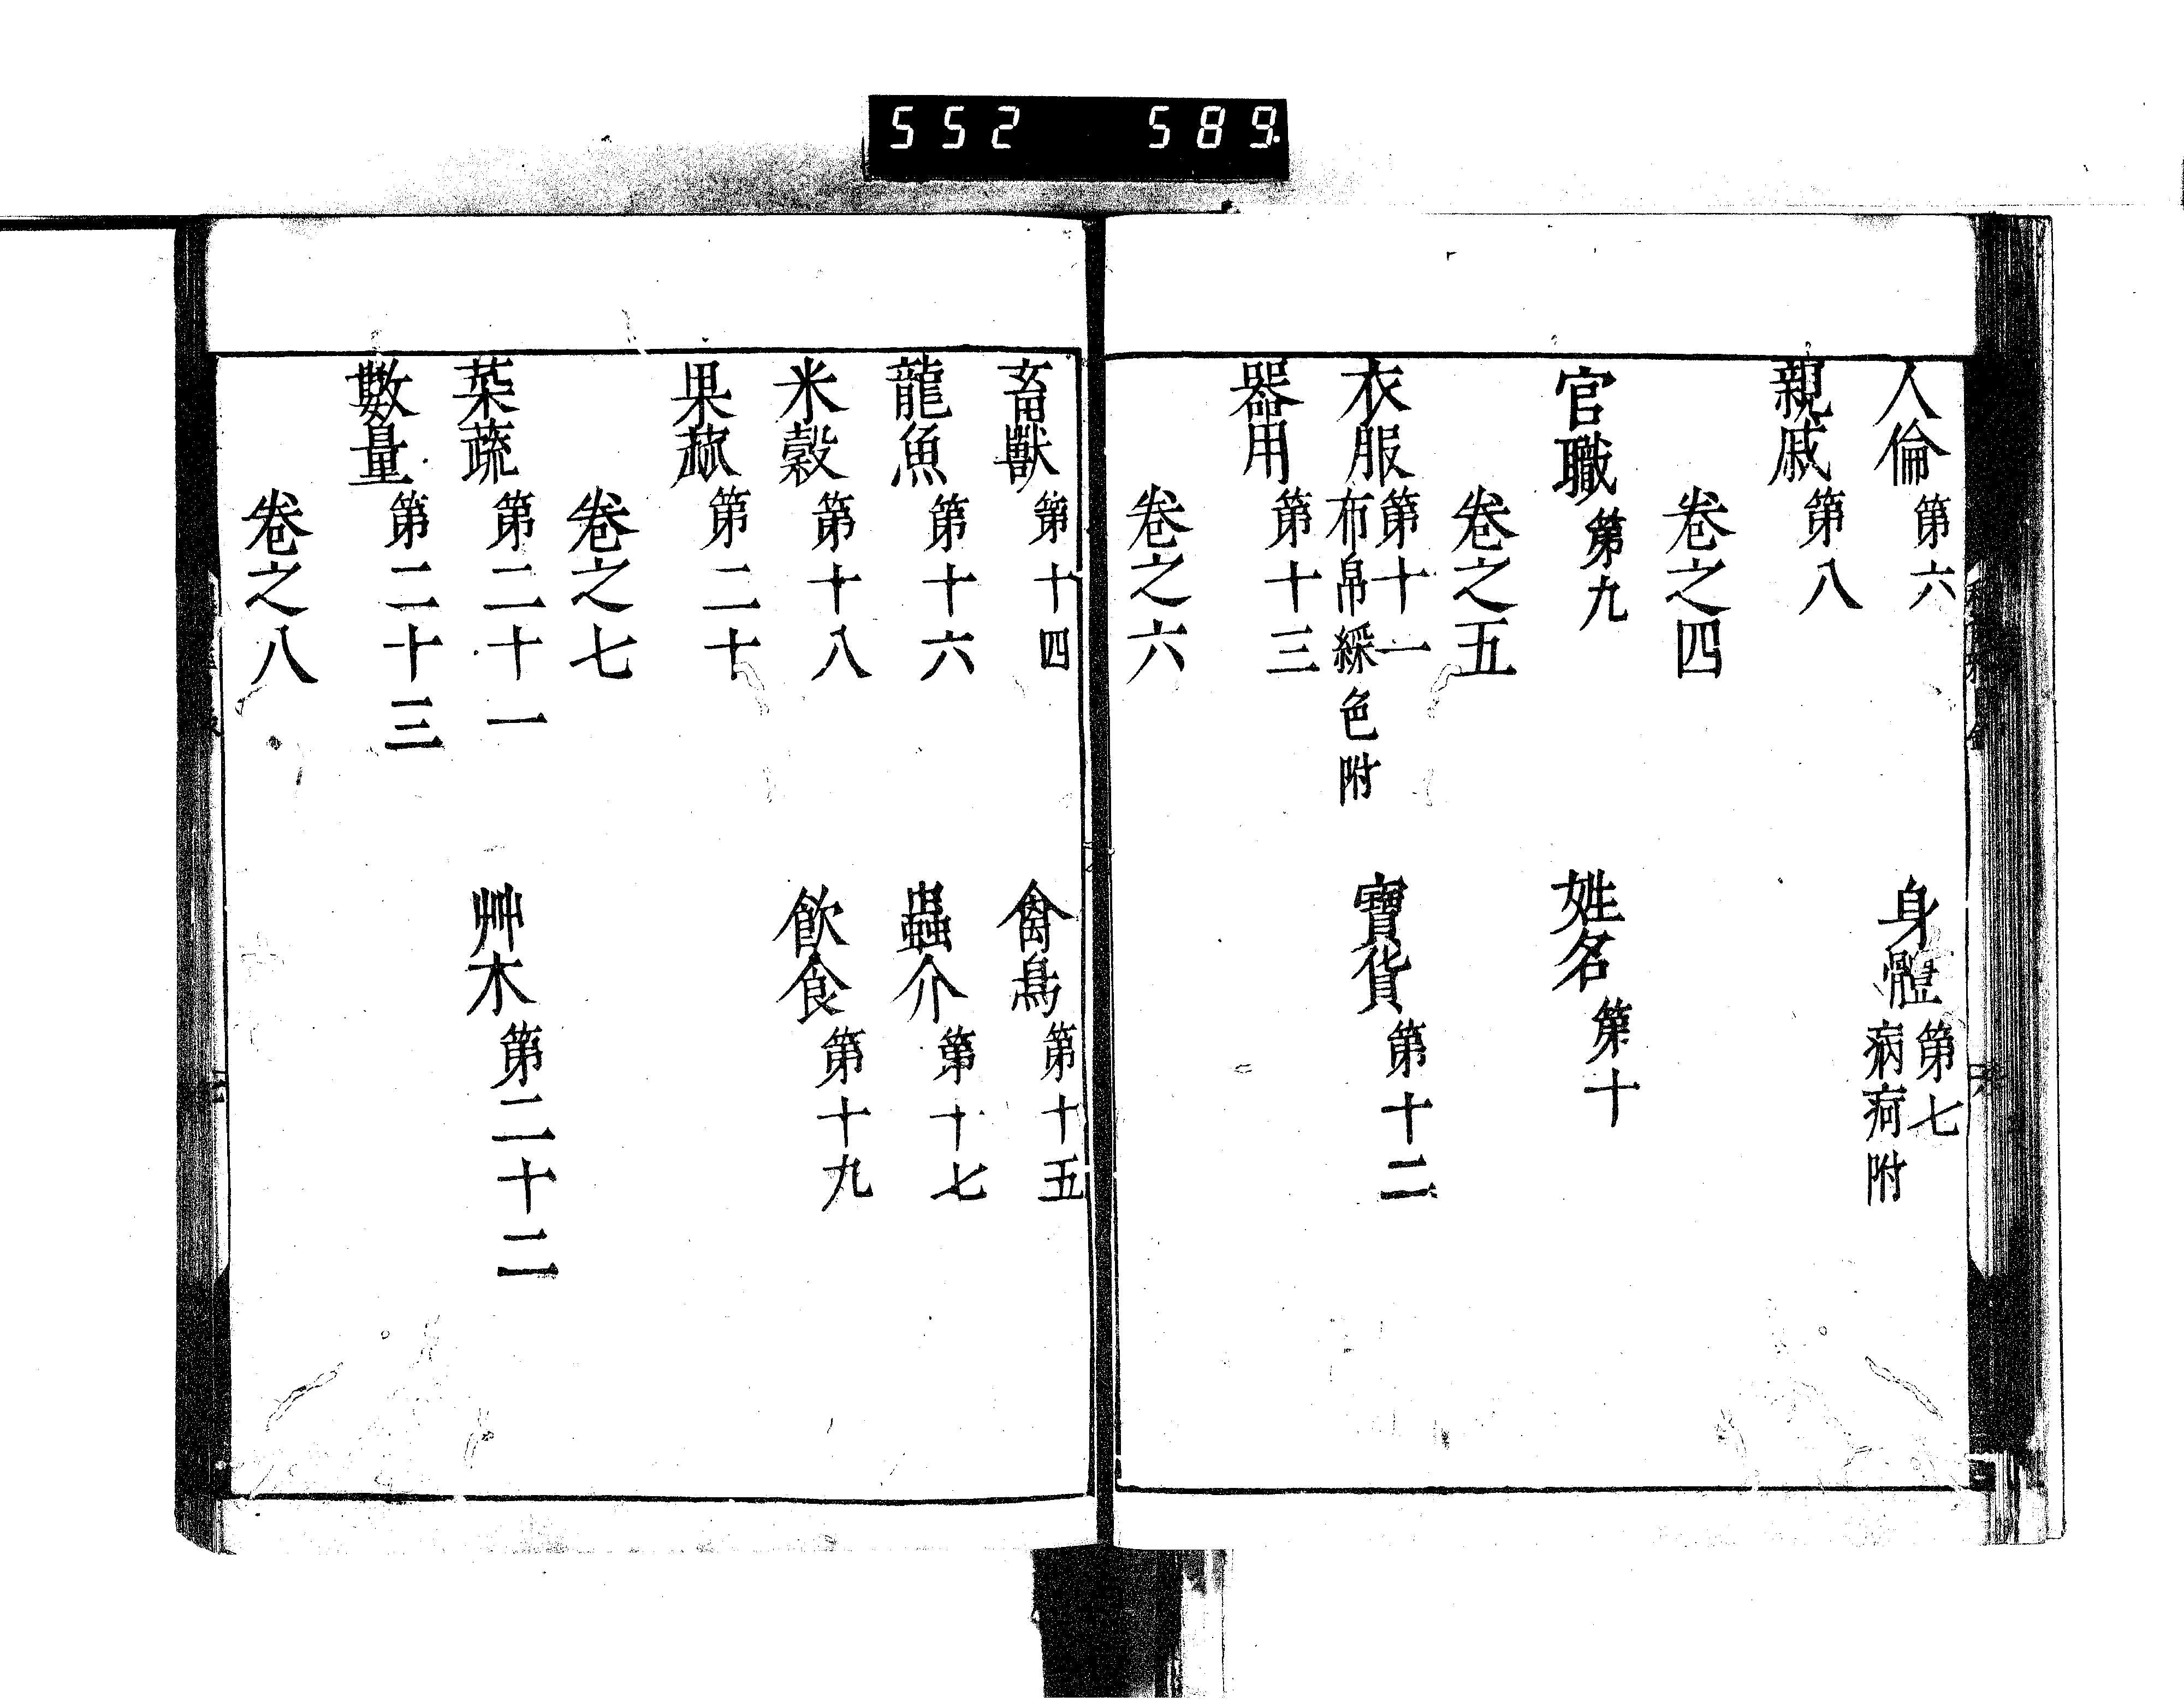 552 589.
人倫第六 身體第七病疴附
親戚第八
卷之四
官職第九 姓名第十
卷之五
衣服第十一布帛綵色附 寶貨第十二
器用第十三
卷之六
畜獸第十四 禽鳥第十五
龍魚第十六 蟲介第十七
米穀第十八 飮食第十九
果蓏第二十
卷之七
菜蔬第二十一 艸木第二十二
數量第二十三
卷之八